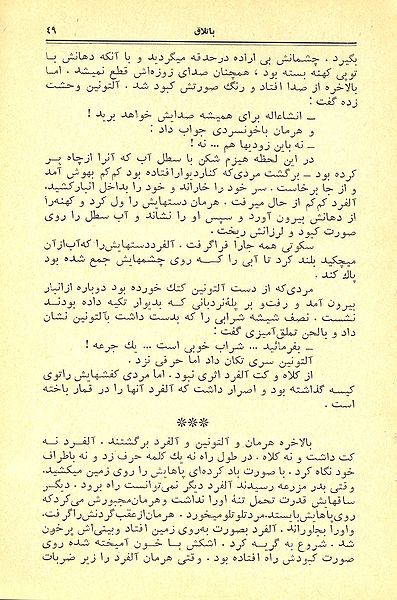 باتلاق
۴۹
بگیرد . چشمانش بی اراده درحدقه میگردید و با آنکه دهانش با
توپی کهنه بسته بود ، همچنان صدای زوزه‌اش قطع نمیشد . اما
بالاخره از صدا افتاد و رنگ صورتش کبود شد . آلتونین وحشت
زده گفت :
ــ انشاءاله برای همیشه صدایش خواهد برید !
و هرمان باخونسردی جواب داد :
ــ نه باین زودیها هم ... نه !
در این لحظه هیزم شکن با سطل آب که آنرا ازچاه پر
کرده بود ــ برگشت مردی‌که کناردیوارافتاده بود کم‌کم بهوش آمد
و از جا برخاست . سر خود را خاراند و خود را بداخل انبارکشید.
آلفرد کم‌کم از حال میرفت . هرمان دستهایش را ول کرد و کهنه‌را
از دهانش بیرون آورد و سپس او را نشاند و آب سطل را روی
صورت کبود و لرزانش ریخت .
سکوتی همه جارا فراگرفت . آلفرددستهایش‌را که‌آب‌ازآن
میچکید بلند کرد تا آبی را کـه روی چشمهایش جمع شده بود
پاک کند .
مردی‌که از دست آلتونین کتک خورده بود دوباره ازانبار
بیرون آمد و رفت‌و بر پلهٔ‌نردبانی که بدیوار تکیه داده بودند
نشست . نصف شیشه شرابی را که بدست داشت بآلتونین نشان
داد و بالحن تملق‌آمیزی گفت :
ــ بفرمائید ... شراب خوبی است ... یک جرعه !
آلتونین سری تکان داد اما حرفی نزد .
از کلاه و کت آلفرد اثری نبود . اما مردی کفشهایش راتوی
کیسه گذاشته بود و اصرار داشت که آلفرد آنها را در قمار باخته
است .
***
بالاخره هرمان و آلتونین و آلفرد برگشتند . آلفرد نه
کت داشت و نه کلاه . در طول راه نه یک کلمه حرف زد و نه باطراف
خود نگاه کرد . با صورت باد کرده‌ای پاهایش را روی زمین میکشید.
وقتی بدر مزرعه رسیدند آلفرد دیگر نمی‌توانست راه برود . دیگر
ساقهایش قدرت تحمل تنهٔ اورا نداشت وهرمان‌مجبورش می‌کردکه
روی‌پاهایش‌بایستد.مردتلوتلومیخورد . هرمان‌ازعقب‌گردنش‌راگرفت.
واورا بجلوراند. آلفرد بصورت به‌روی زمین افتاد وبینی‌اش پرخون
شد . شروع به گریه کرد . اشکش با خـون آمیخته شده روی
صورت کبودش راه افتاده بود . وقتی هرمان آلفرد را زیر ضربات